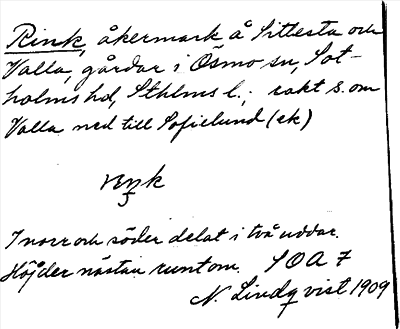 Rink, åkermark å Sittesta och
Valla, gårdar i Ösmo sn, Sot-
holms hd, Sthlms l.; rakt S. om
Valla ned till Sofielund (ek)
I norr och söder delat i två uddar.
Höjder nästan runt om. SOA 7
N. Lindqvist 1909